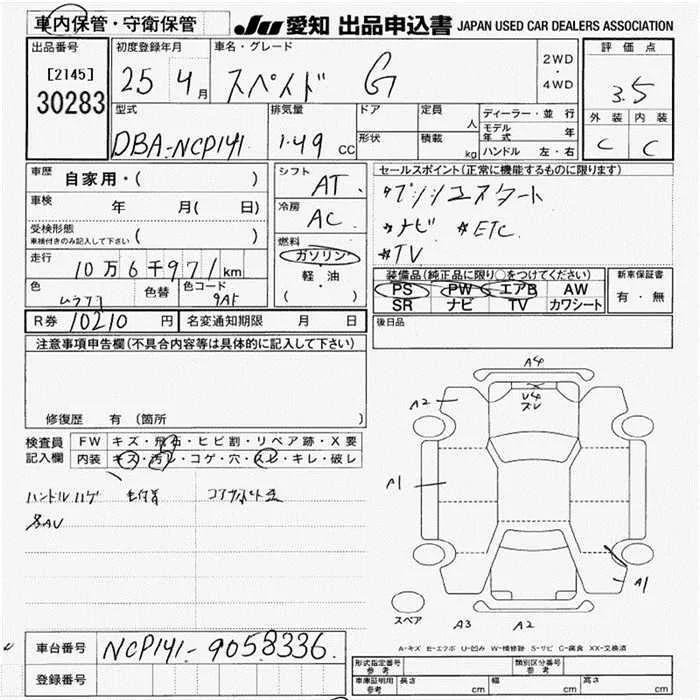 車内保管・守衛保管 愛知 出品申込書 JAPAN USED CAR DEALERS ASSOCIATION
出品番号 初度登録年月 車名・グレード 評価点
[2145] 25 4月 スペイド G 2WD ・ 4WD 3.5
30283
型式 排気量 ドア 定員 人 ディーラー・並行 外装 内装
DBA-NCP141 1.49 CC 形状 積載 kg モデル年式 年 C C
ハンドル 左・右
車歴 自家用・( ) シフト AT セールスポイント(正常に機能するものに限ります)
車検 年 月( 日) 冷房 AC プッシュスタート
受検形態 ( ) ナビ ETC
車検付きのみ記入して下さい 燃料 TV
走行 10万6千971km ガソリン
軽・油
( )
装備品(純正品に限り○をつけてください) 新車保証書
PS PW エアB AW 有・無
SR ナビ TV カワシート
色 色替 色コード 9AF
R券 10210円 名変通知期限 月 日 後日品
注意事項申告欄(不具合内容等は具体的に記入して下さい)
修復歴 有 (箇所 )
検査員記入欄 FW キズ・飛石・ヒビ割・リペア跡・X要
内装 キズ・汚レ・コゲ・穴・スレ・キレ・破レ
ハンドルハゲ
A4
A2 U4
A1
A1
スペア A3 A2
A-キズ E-エクボ U-凹み W-補修跡 S-サビ C-腐食 XX-交換済
車台番号 NCP141-9058336
登録番号
形式指定番号 参考 類別区分番号 参考
車庫証明用 参考 長さ cm 幅 cm 高さ cm